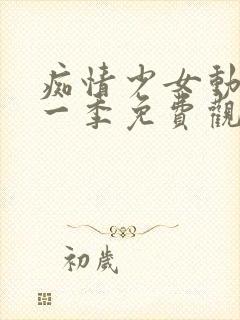 痴情少女動
一季免費觀
初歲